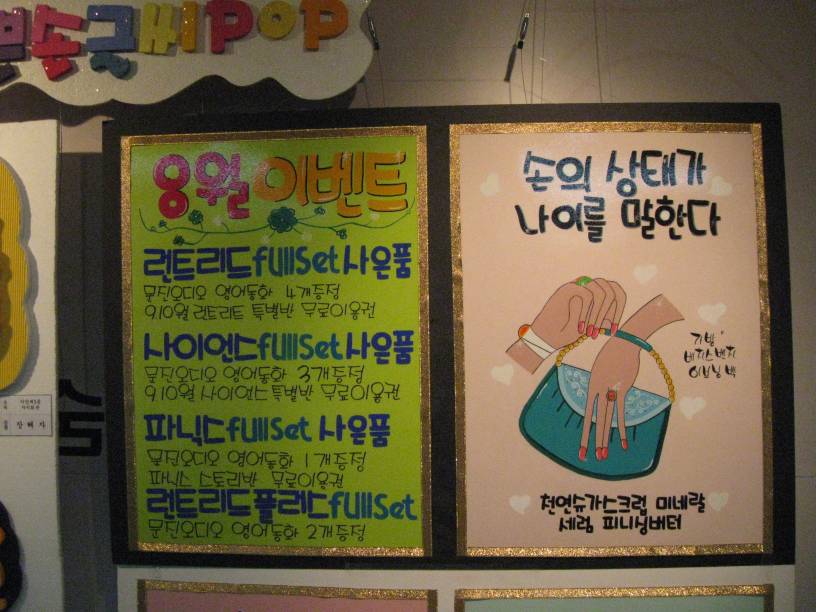 쁘송글씨POP
8월 이벤트
런트리드fullSet사은품
문진오디오 영어동화 4개증정
9,10월 런트리드 특별반 무료이용권
사이언스fullSet사은품
문진오디오 영어동화 3개증정
9,10월 사이언스 특별반 무료이용권
파닉스fullSet 사은품
문진오디오 영어동화 1개증정
파닉스 스토리반 무료이용권
런트리드플러스fullSet
문진오디오 영어동화 2개증정
손의 상태가
나이를 말한다
가방
이브닝 백
천연슈가스크럽 미네랄
세럼 피니싱버터